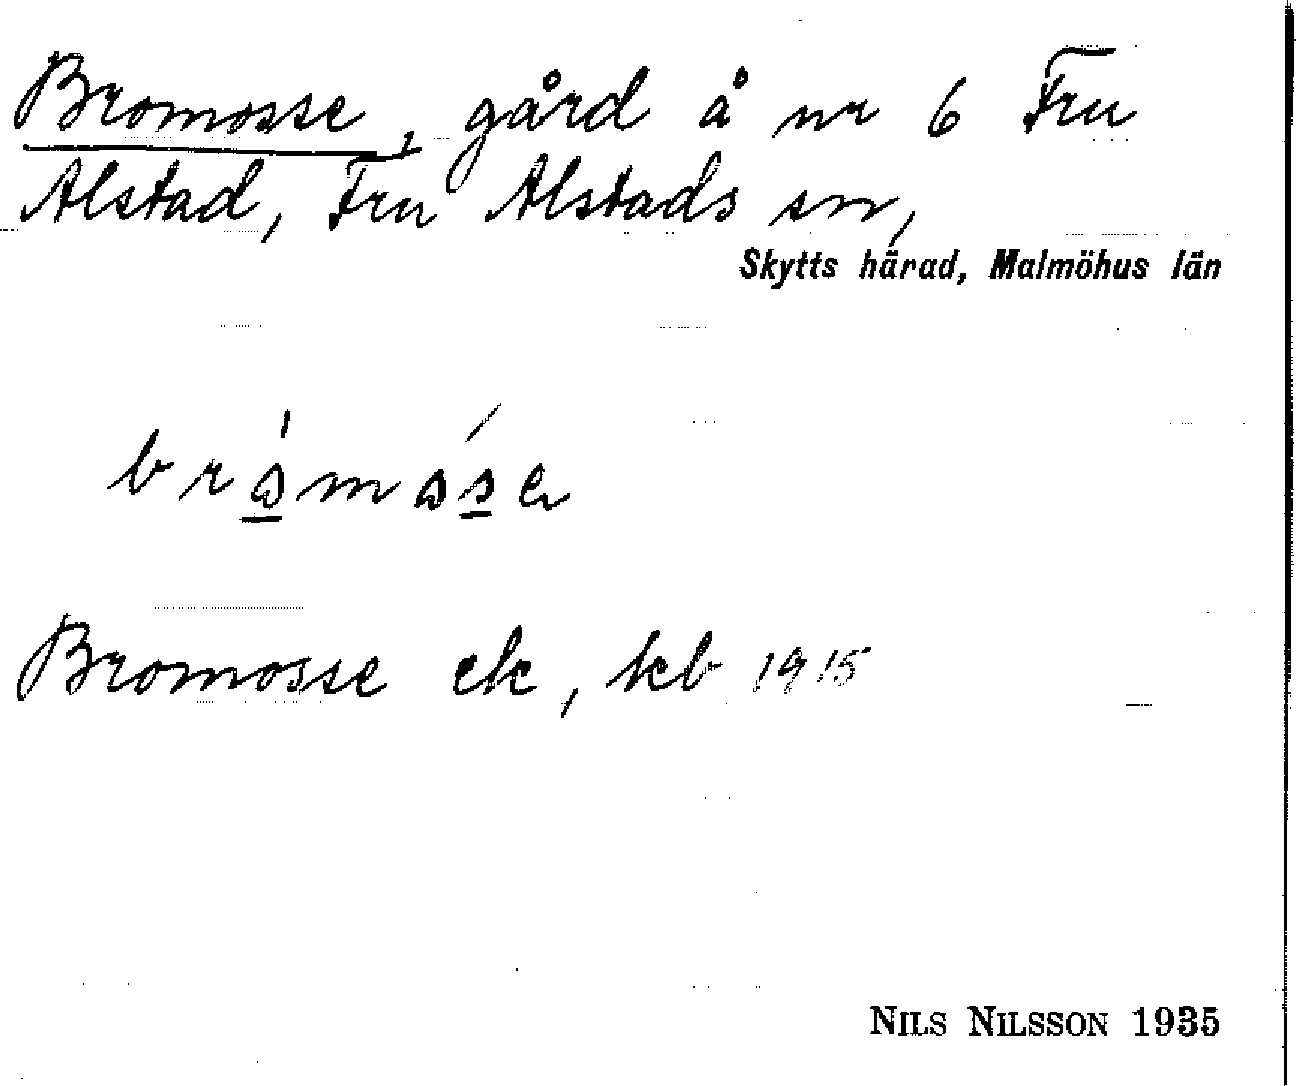 Bromosse, gård å nr 6 Fru
Alstad, Fru Alstads sn,
Skytts härad, Malmöhus län
Bromosse ek, kb 1915
NILS NILSSON 1935